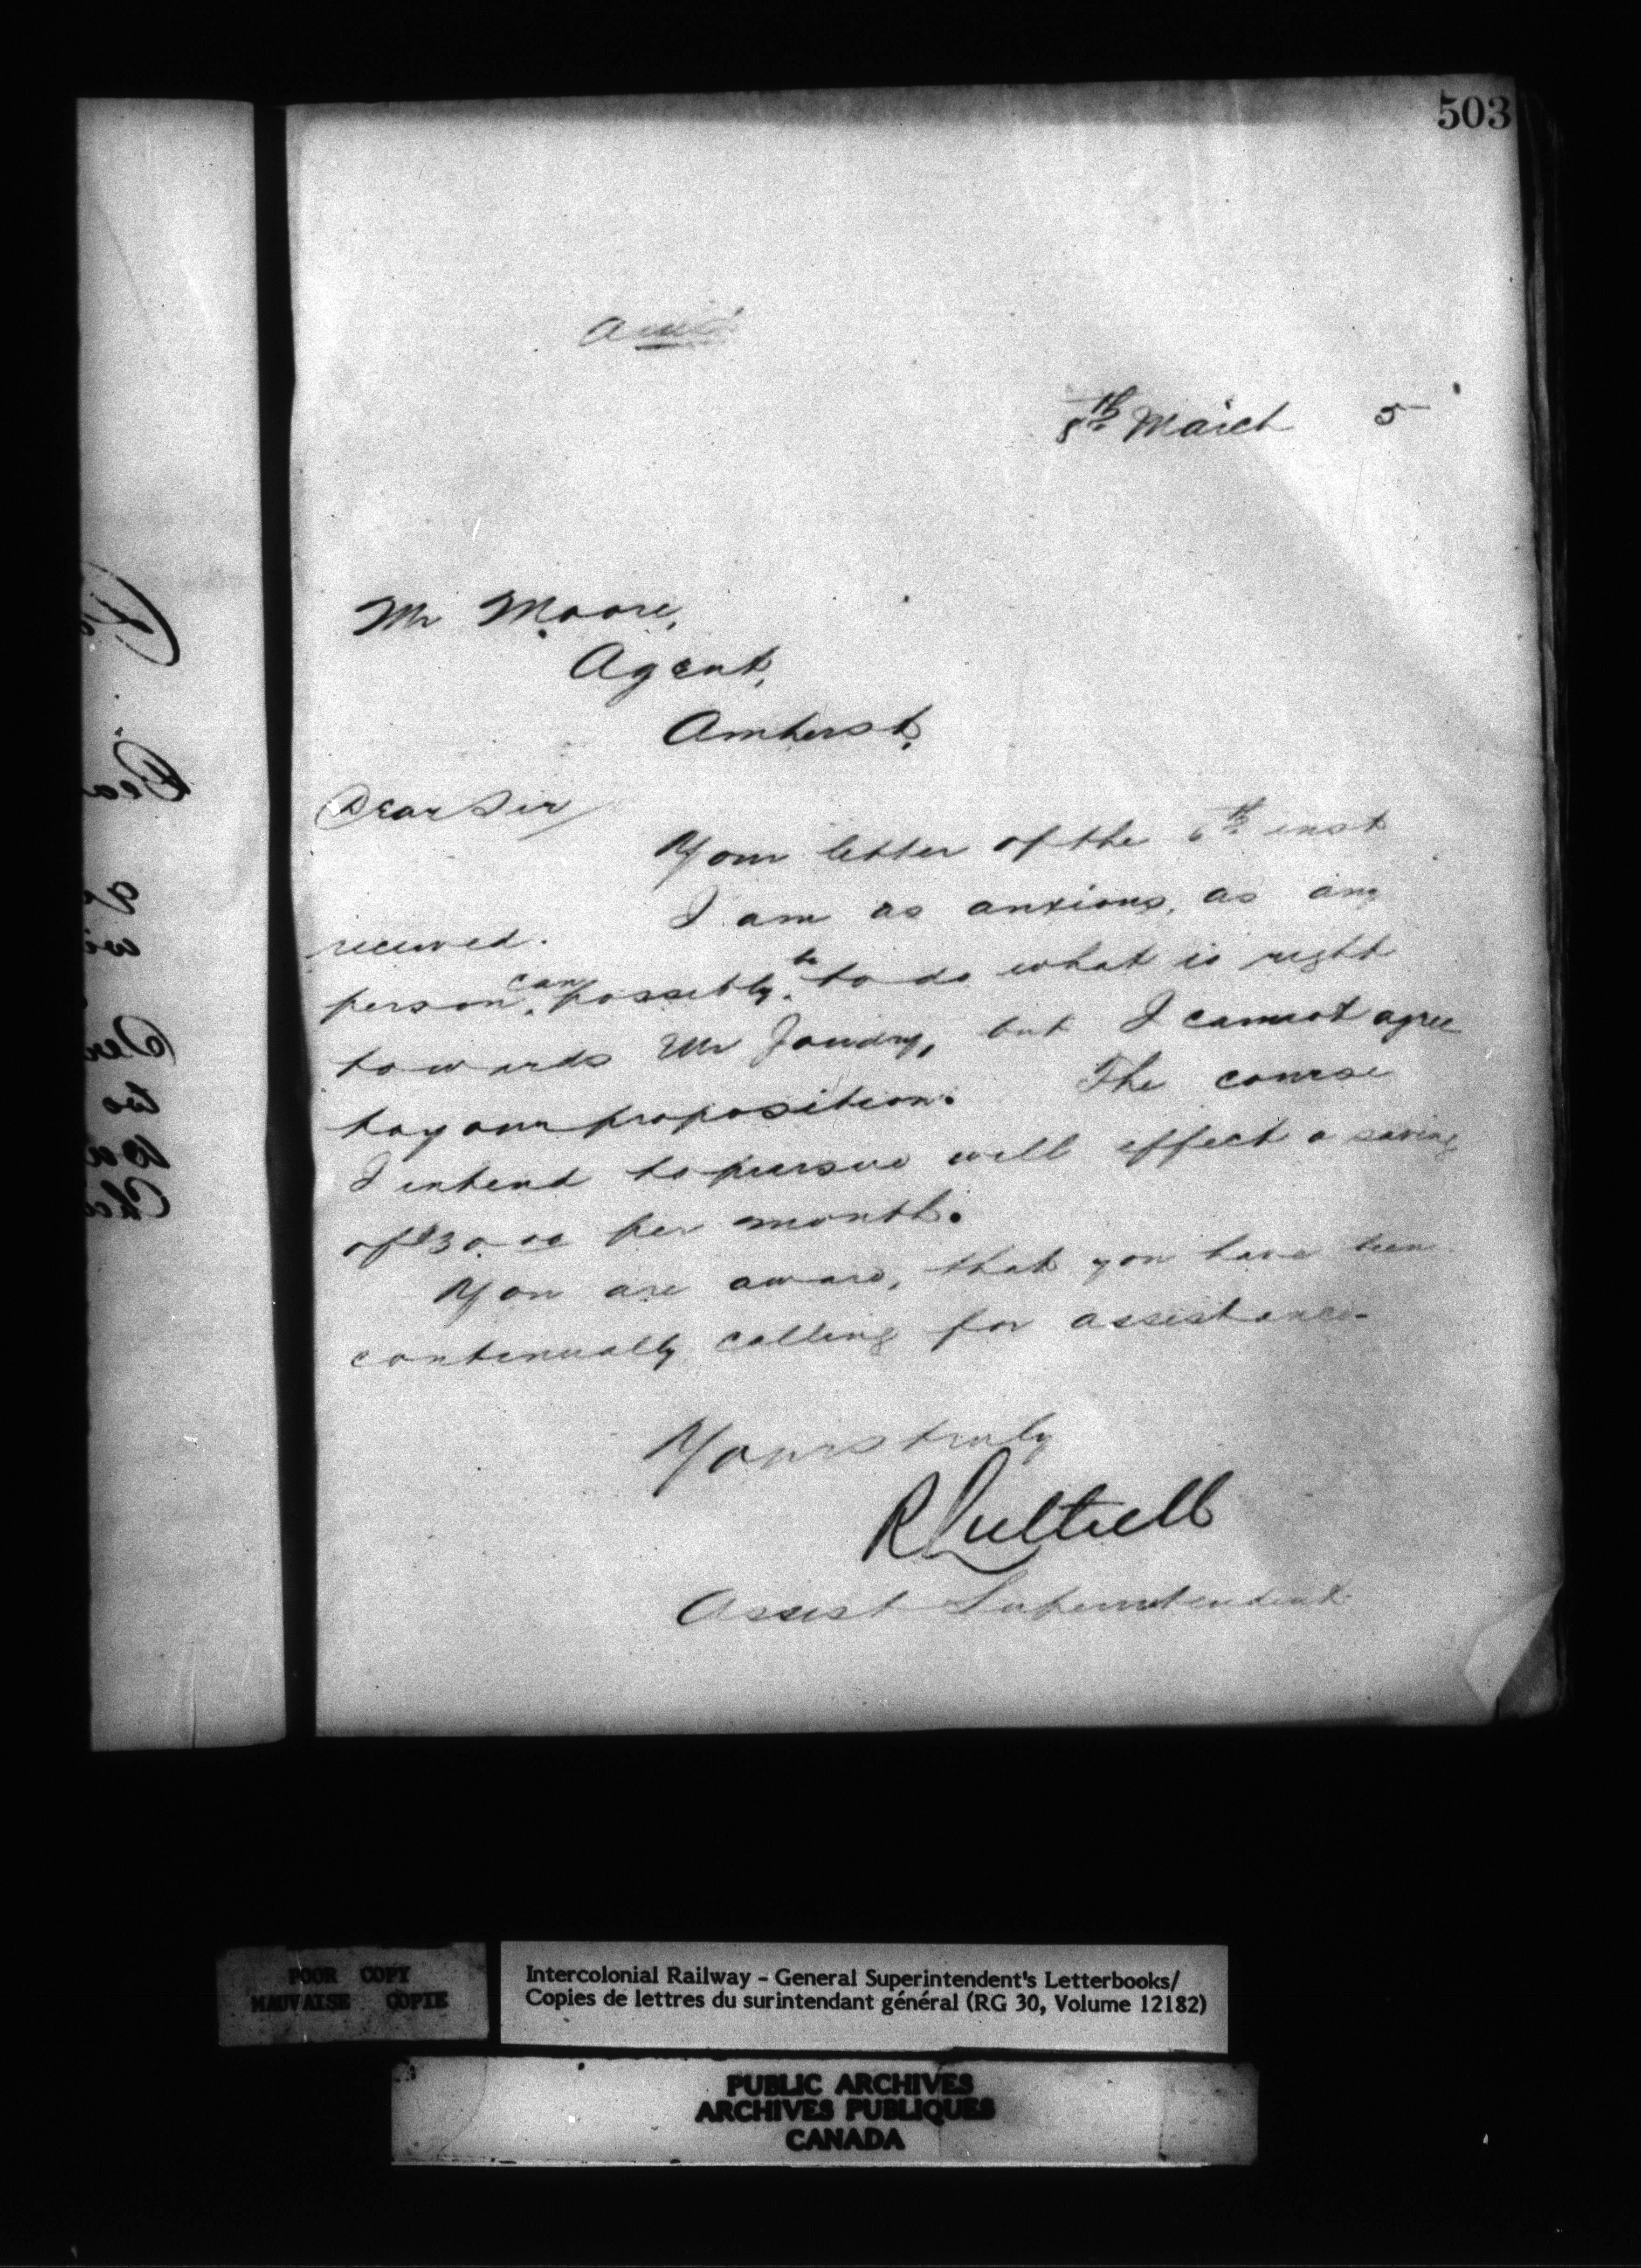 503
8th March 5
Mr Moore,
Agent,
Amherst,
Dear Sir
Your letter of the 6th inst
received. I am as anxious, as any
person can possibly be to do what is right
towards Mr but I cannot agree
to your proposition. The course
I intend to pursue will effect a saving
of $30.00 per month.
You are aware, that you have been
continually calling for assistance.
Yours truly
R Luttrell
Assist Superintendent
POOR COPY
MAUVAISE COPIE
Intercolonial Railway - General Superintendent's Letterbooks/
Copies de lettres du surintendant général (RG 30, Volume 12182)
PUBLIC ARCHIVES
ARCHIVES PUBLIQUES
CANADA